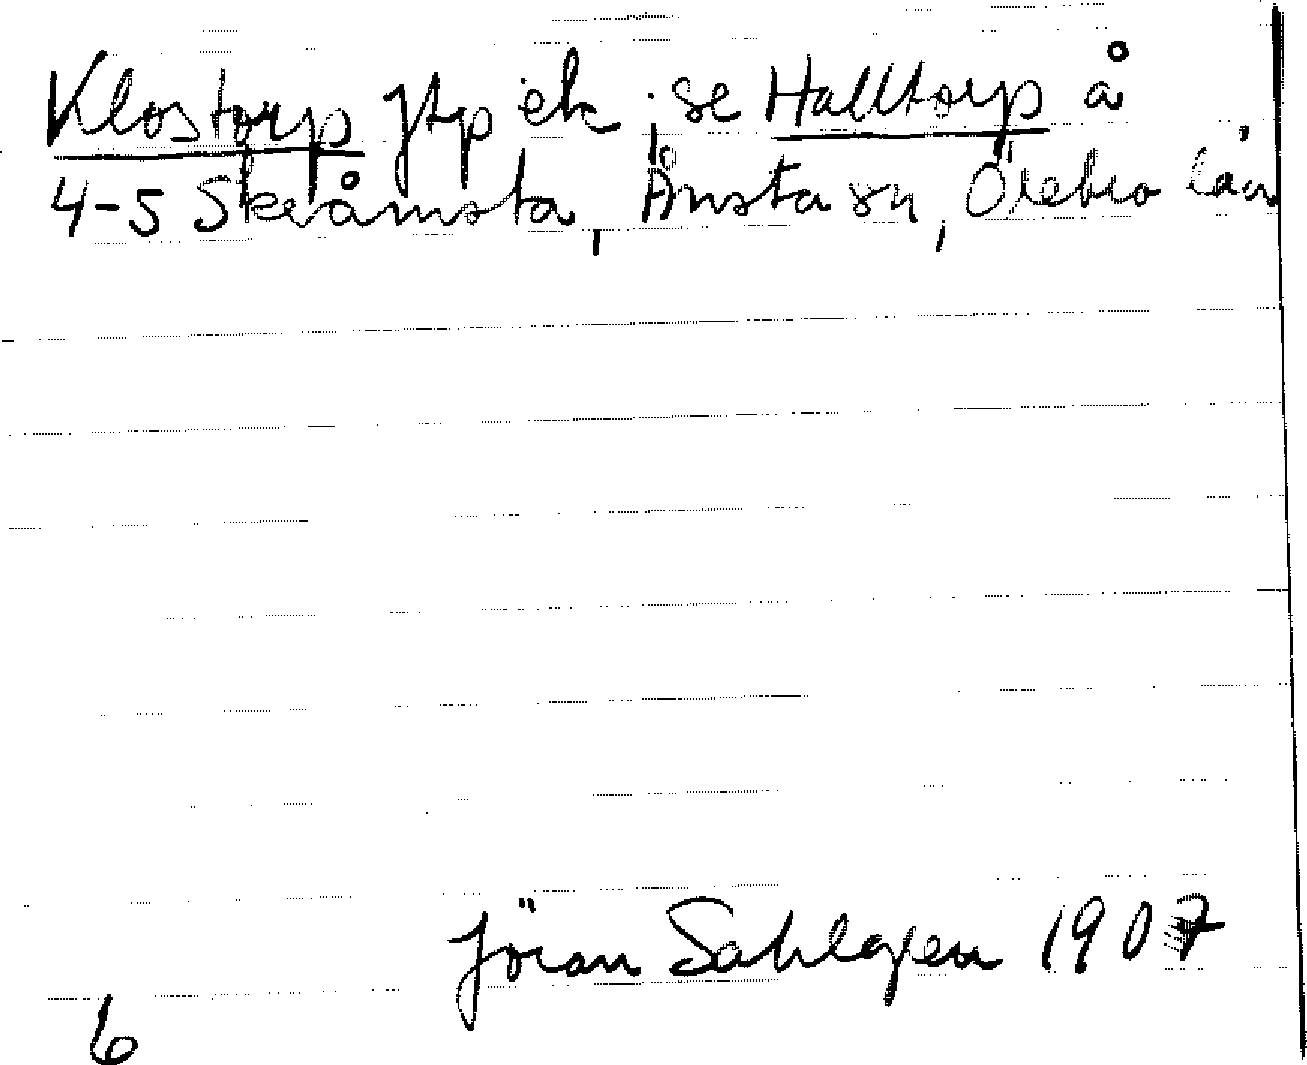 Klostorp jtp ek; se Halltorp å
4-5 Skråmsta, Ånsta sn, Örebro län
Jöran Sahlgren 1907
6